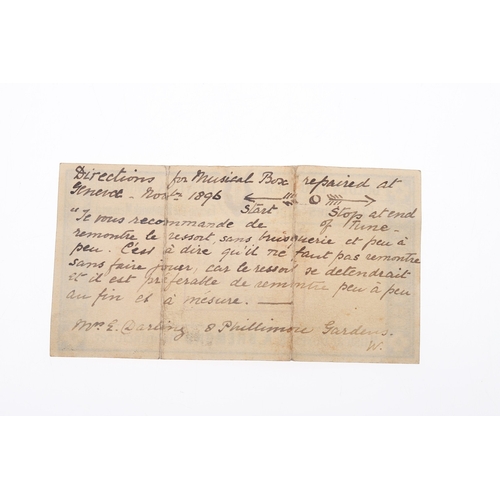 Directions for Musical Box repaired at
Geneva - Novbr 1896
Start Stop at end
"Je vous recommande de of Tune -
remonter le ressort, sans brusquerie et peu à
peu. C'est à dire qu'il ne faut pas remonter
sans faire jouer, car le ressort se detendrait
et il est préférable de remontre peu à peu
au fin et à mesure. —
Mrs E. Darling 8 Phillimore Gardens.
W.